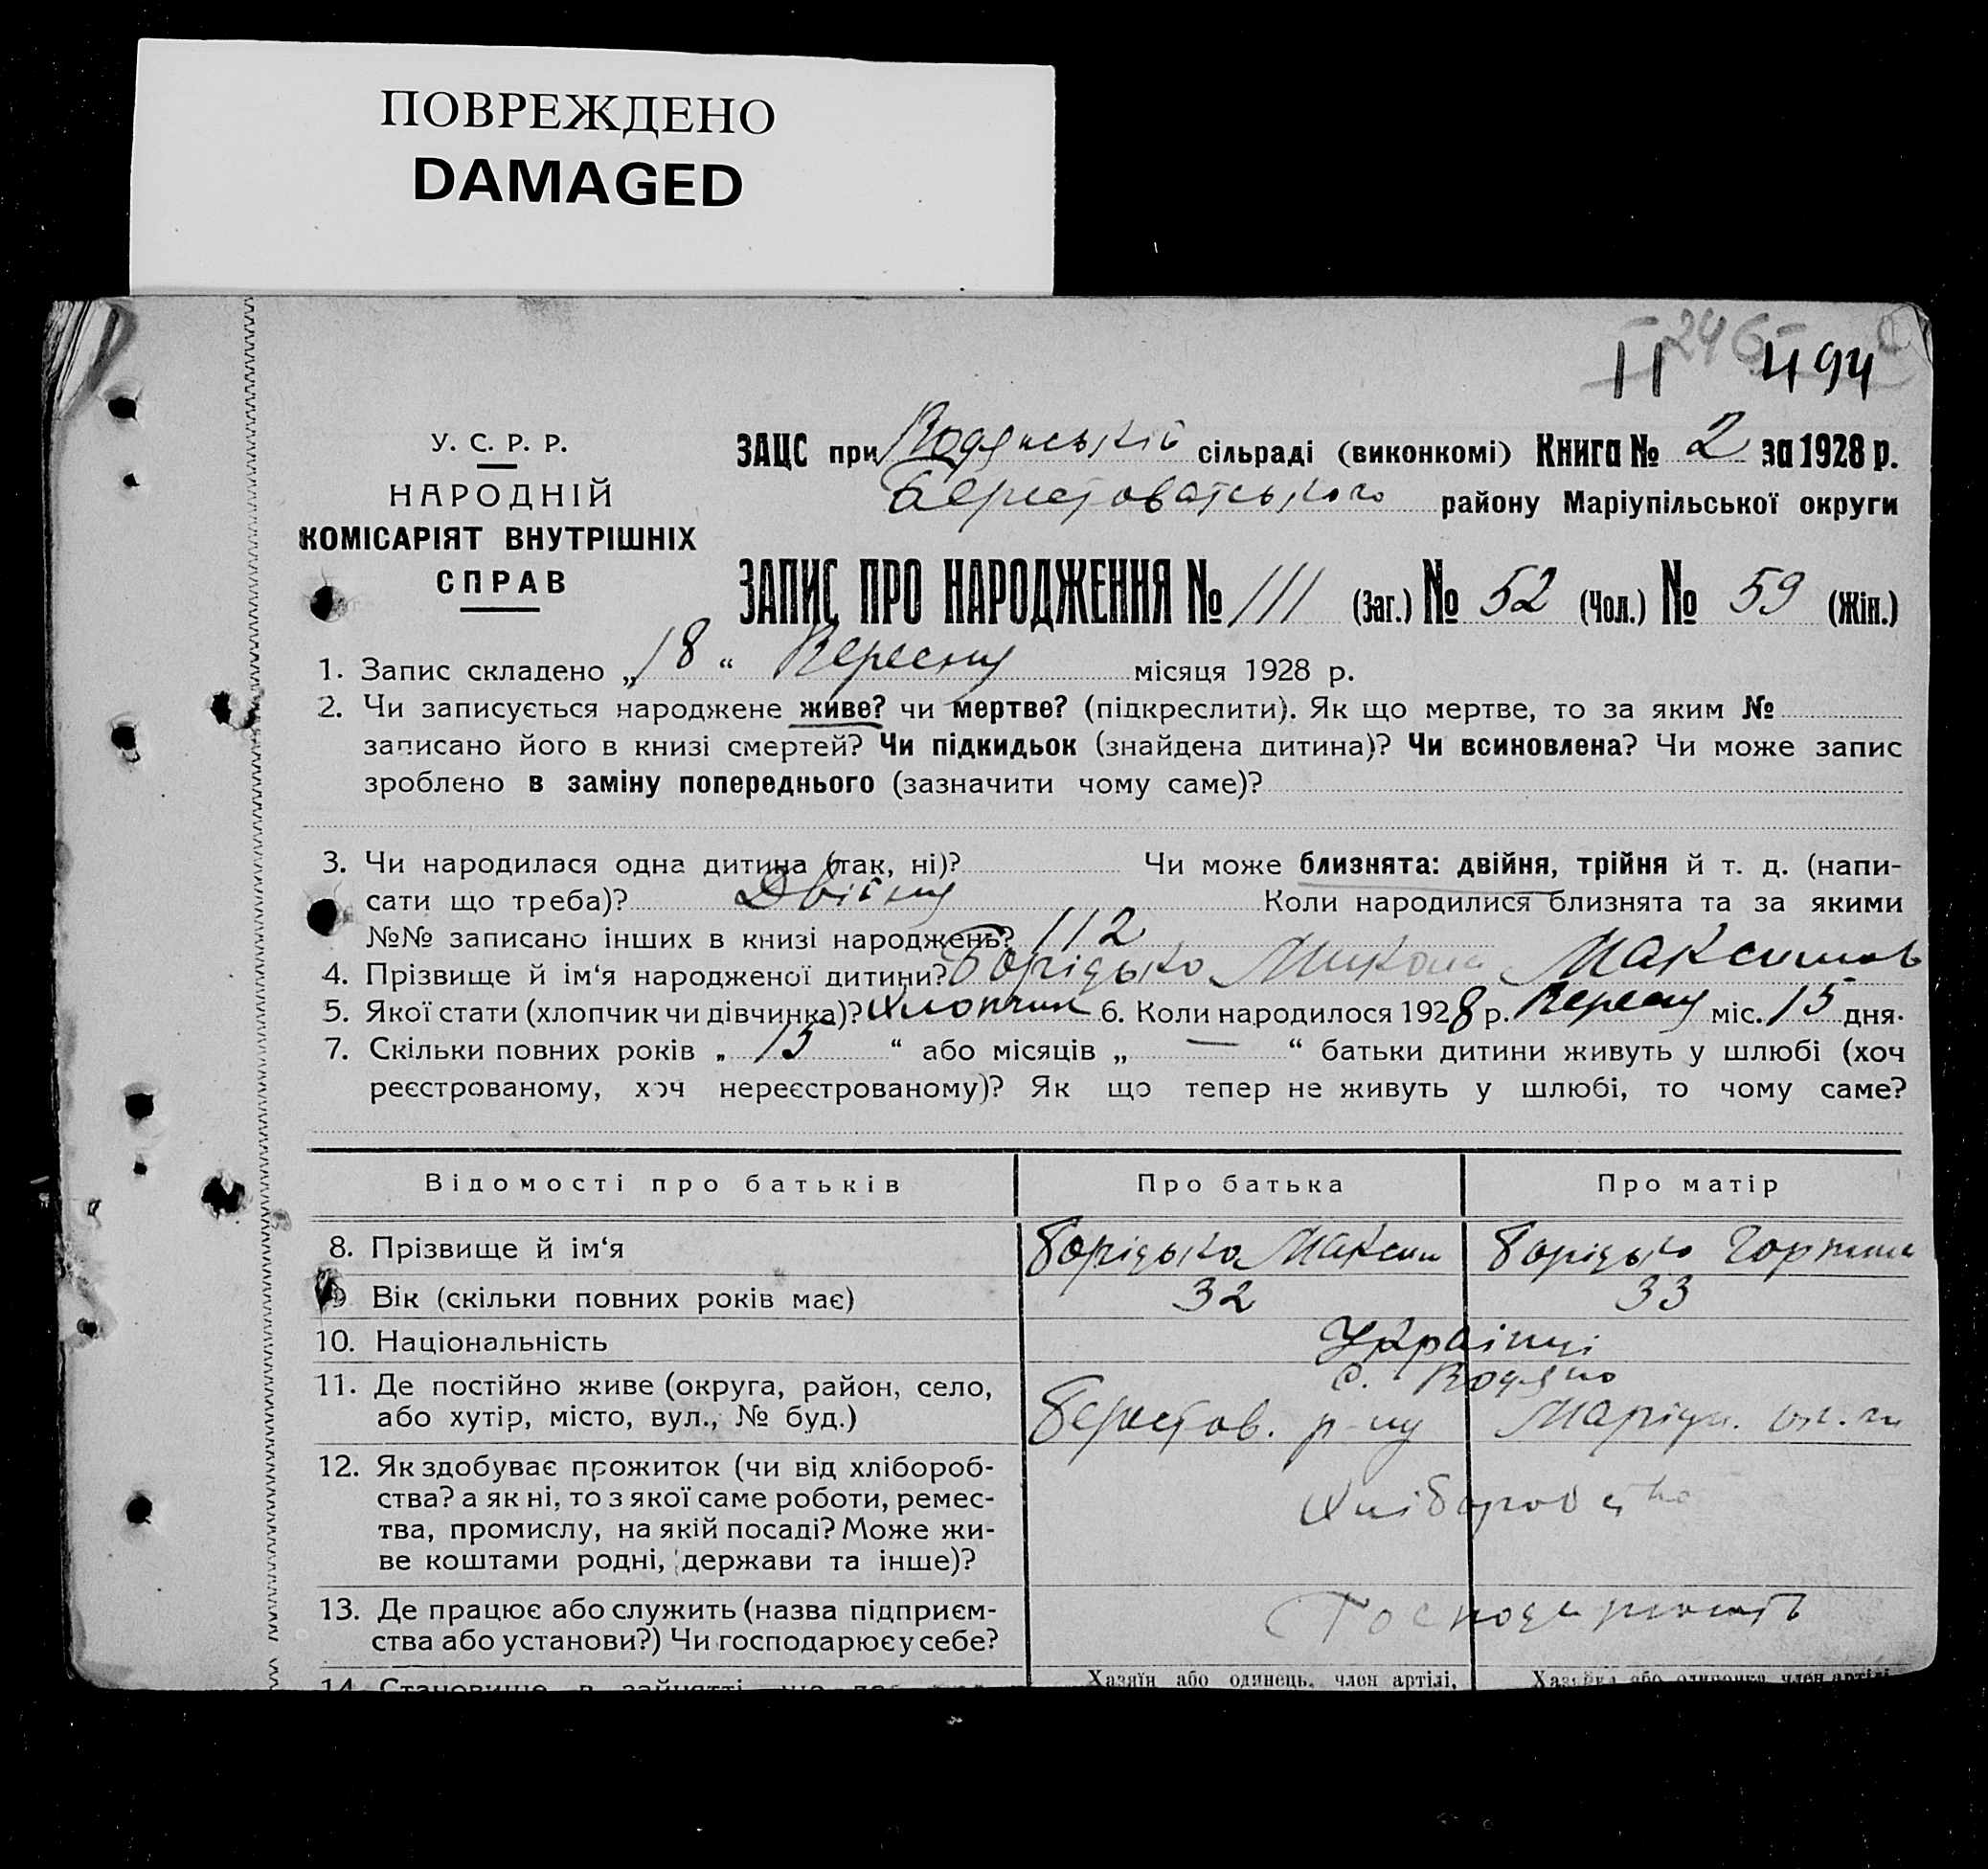 ПОВРЕЖДЕНО
DAMAGED
246
II 494
У. С. Р. Р.
НАРОДНІЙ
КОМІСАРІЯТ ВНУТРІШНІХ
СПРАВ
ЗАЦС при Водянській сільраді (виконкомі) Книга № 2 за 1928 р.
Берестоватського району Маріупільської округи
ЗАПИС ПРО НАРОДЖЕННЯ № 111 (Заг.) № 52 (Чол.) № 59 (Жін.)
1. Запис складено „18“ Вересня місяця 1928 р.
2. Чи записується народжене живе? чи мертве? (підкреслити). Як що мертве, то за яким №
записано його в книзі смертей? Чи підкидьок (знайдена дитина)? Чи всиновлена? Чи може запис
зроблено в заміну попереднього (зазначити чому саме)?
3. Чи народилася одна дитина (так, ні)? Чи може близнята: двійня, трійня й т. д. (напи-
сати що треба)? Двійня Коли народилися близнята та за якими
№№ записано інших в книзі народжень? 112
4. Прізвище й ім‘я народженої дитини? Борідько Микола Максимов
5. Якої стати (хлопчик чи дівчинка)? Хлопчик 6. Коли народилося 1928 р. Вересня міс. 15 дня.
7. Скільки повних років „ 15 “ або місяців „ — “ батьки дитини живуть у шлюбі (хоч
реєстрованому, хоч нереєстрованому)? Як що тепер не живуть у шлюбі, то чому саме?
Відомості про батьків Про батька Про матір
8. Прізвище й ім‘я Борідько Максим Борідько Горпина
9 Вік (скільки повних років має) 32 33
10. Національність Українці
11. Де постійно живе (округа, район, село, с. Водяно
або хутір, місто, вул., № буд.) Берестов. р-ну Маріуп. ок-ги
12. Як здобуває прожиток (чи від хлібороб-
ства? а як ні, то з якої саме роботи, ремес- Хліборобство
тва, промислу, на якій посаді? Може жи-
ве коштами родні, держави та інше)?
13. Де працює або служить (назва підприєм- Господарюють
ства або установи?) Чи господарює у себе?
14 Становище в зайнятті, що
Хазяїн або одинець, член артілі,
Хазяйка або одиночка член артілі